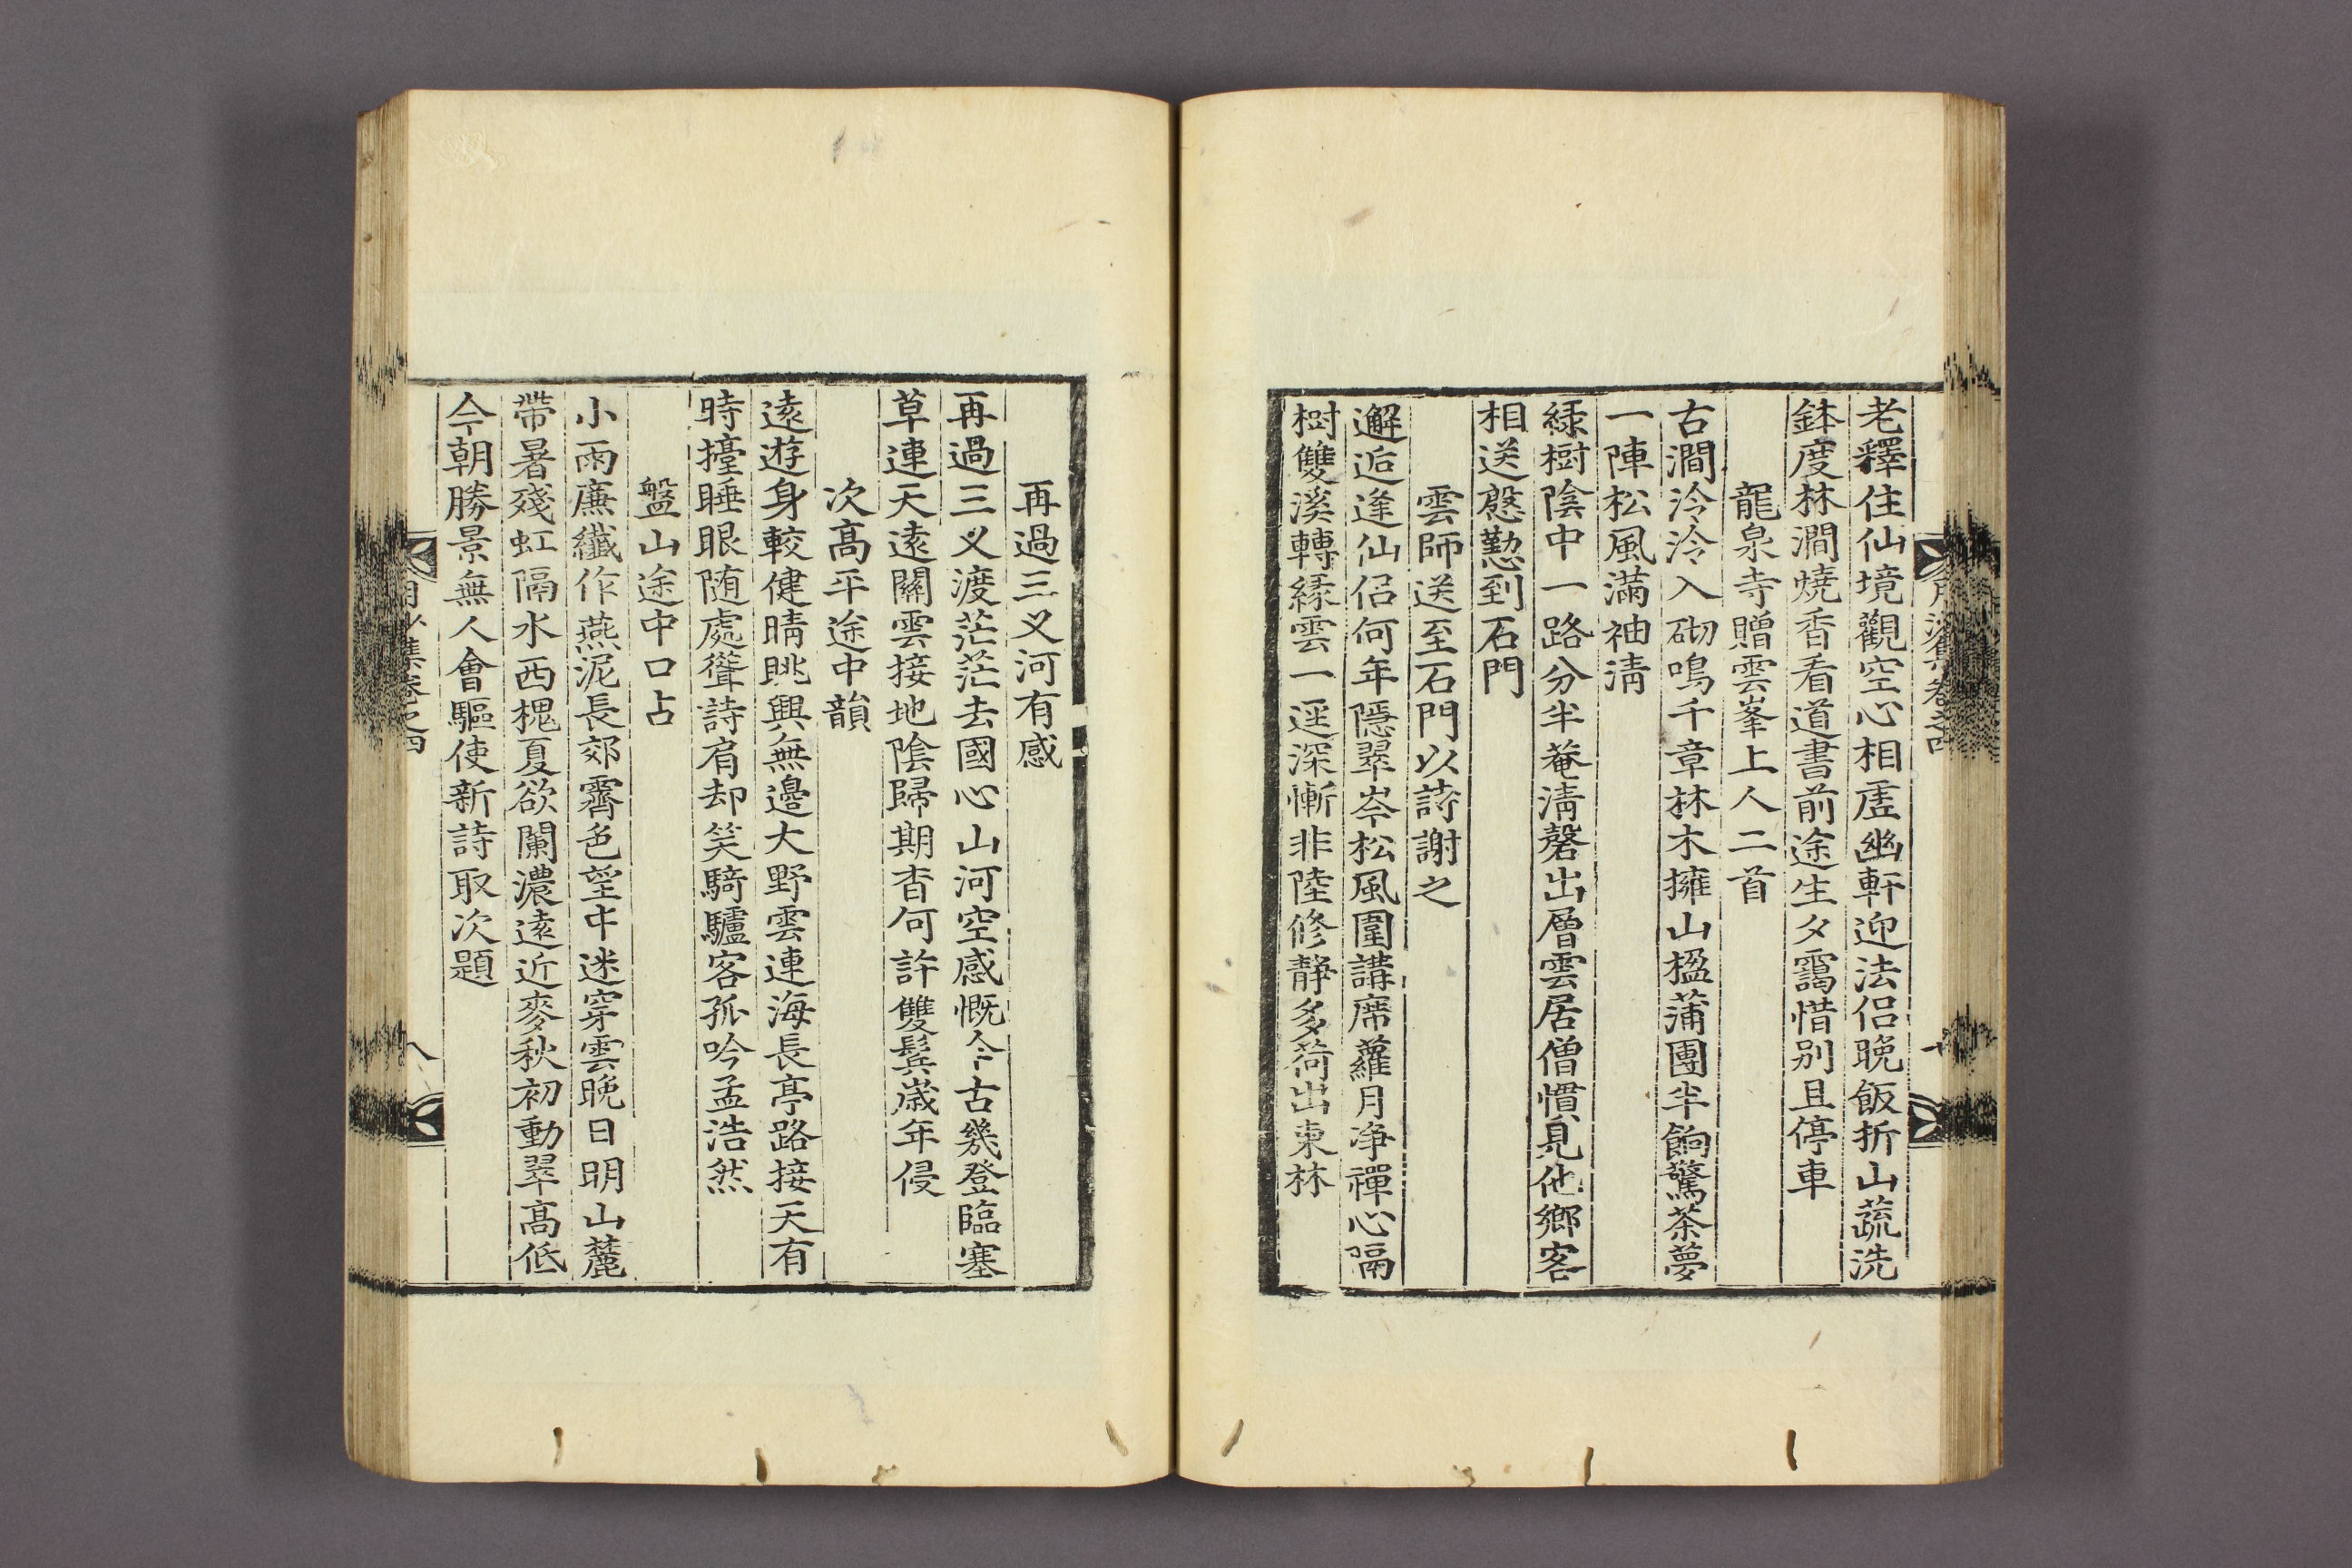 老釋住仙境觀空心相虛幽軒迎法侶晚飯折山蔬洗
鉢度林澗燒香看道書前途生夕靄惜別且停車
龍泉寺贈雲峯上人二首
古澗泠泠入砌鳴千章林木擁山楹蒲團半餉驚茶夢
一陣松風滿袖清
綠樹陰中一路分半菴清磬出層雲居僧慣見他鄉客
相送慇懃到石門
雲師送至石門以詩謝之
邂逅逢仙侶何年隱翠岑松風圍講席蘿月净禪心隔
樹雙溪轉緣雲一逕深慚非陸修靜多荷出東林
再過三义河有感
再過三义渡茫茫去國心山河空感慨今古幾登臨塞
草連天遠關雲接地陰歸期杳何許雙鬂歲年侵
次高平途中韻
遠遊身較健晴眺興無邊大野雲連海長亭路接天有
時擡睡眼随處聳詩肩却笑騎驢客孤吟孟浩然
盤山途中口占
小雨廉纖作燕泥長郊霽色望中迷穿雲晚日明山麓
帶暑殘虹隔水西槐夏欲闌濃遠近麥秋初動翠高低
今朝勝景無人會驅使新詩取次題
月沙集卷之四
八